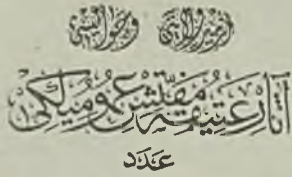 ازمیر ولایتی وحوالیسی
آثار عتیقه مفتش عمومیلکی
عدد